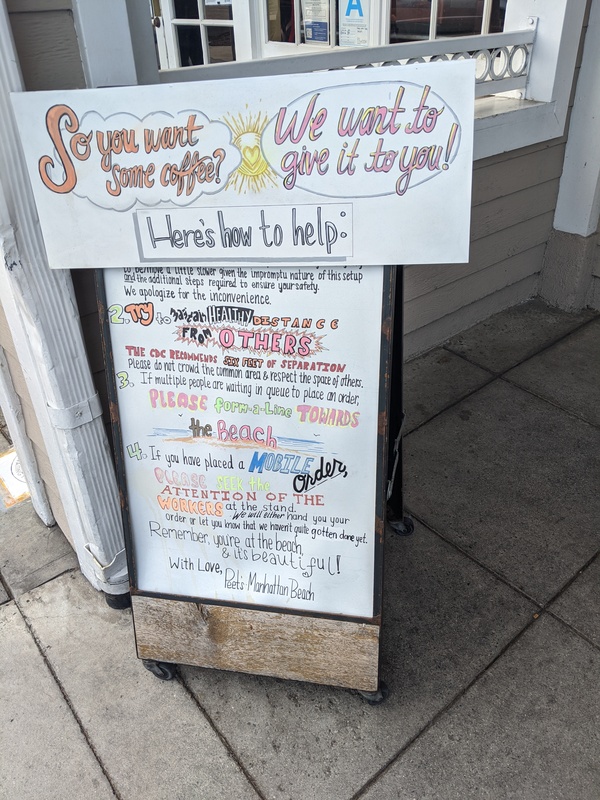 So you want
some coffee?
We want to
give it to you!
Here's how to help:
to be/move a little slower given the impromptu nature of this setup
and the additional steps required to ensure your safety.
We apologize for the inconvenience.
2. Try to maintain HEALTHY DISTANCE
FROM OTHERS
THE CDC RECOMMENDS SIX FEET OF SEPARATION
Please do not crowd the common area & respect the space of others.
3. If multiple people are waiting in queue to place an order,
PLEASE form-a-Line TOWARDS
the Beach
4. If you have placed a MOBILE
Order,
PLEASE SEEK the
ATTENTION OF THE
WORKERS at the stand.
We will either hand you your
order or let you know that we haven't quite gotten done yet.
Remember, you're at the beach,
& it's beautiful!
With Love,
Peet's Manhattan Beach
A